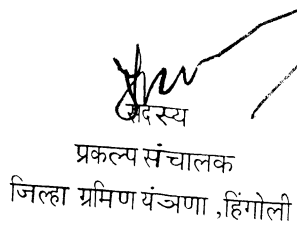 सदस्य
प्रकल्प संचालक
जिल्हा ग्रमिण यंत्रणा ,हिंगोली